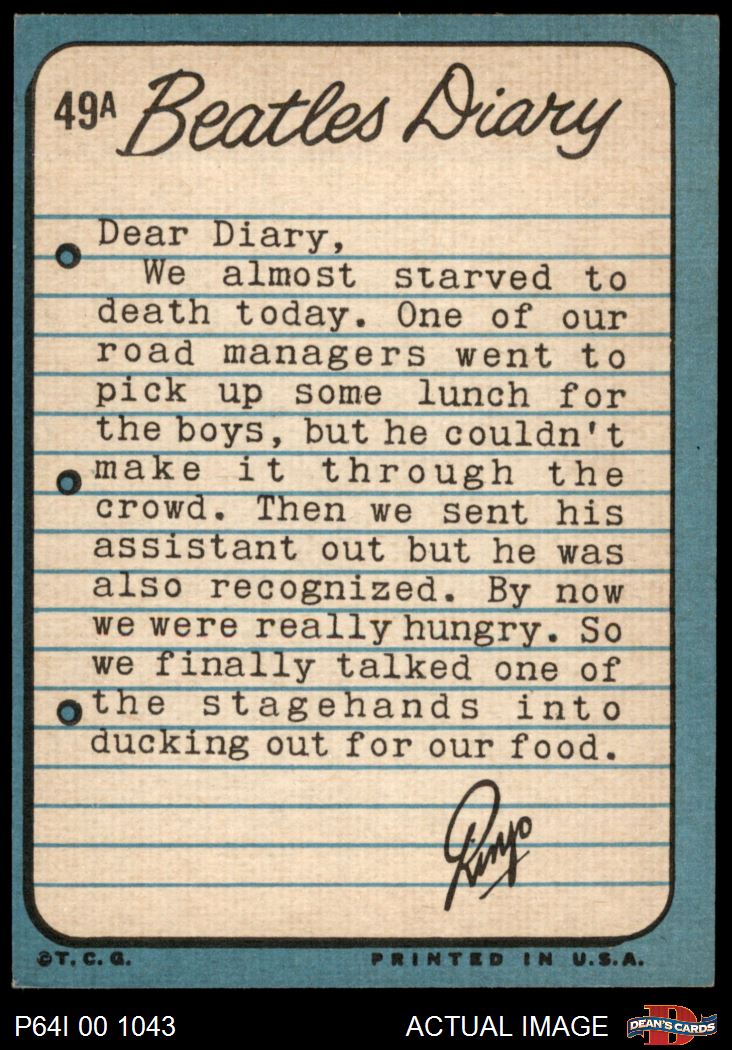 49A Beatles Diary
Dear Diary,
We almost starved to
death today. One of our
road managers went to
pick up some lunch for
the boys, but he couldn't
make it through the
crowd. Then we sent his
assistant out but he was
also recognized. By now
we were really hungry. So
we finally talked one of
the stagehands into
ducking out for our food.
Ringo
©T.C.G. PRINTED IN U.S.A.
P64I 00 1043 ACTUAL IMAGE D DEAN'S CARDS